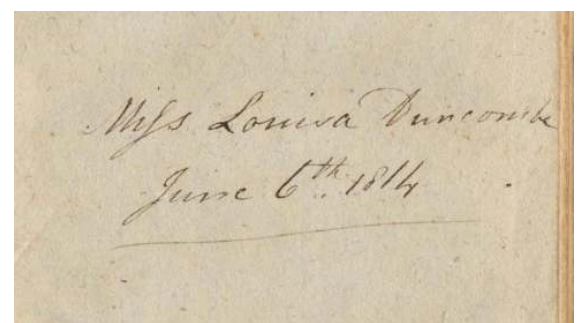 Miſs Louisa Duncombe
June 6th. 1814